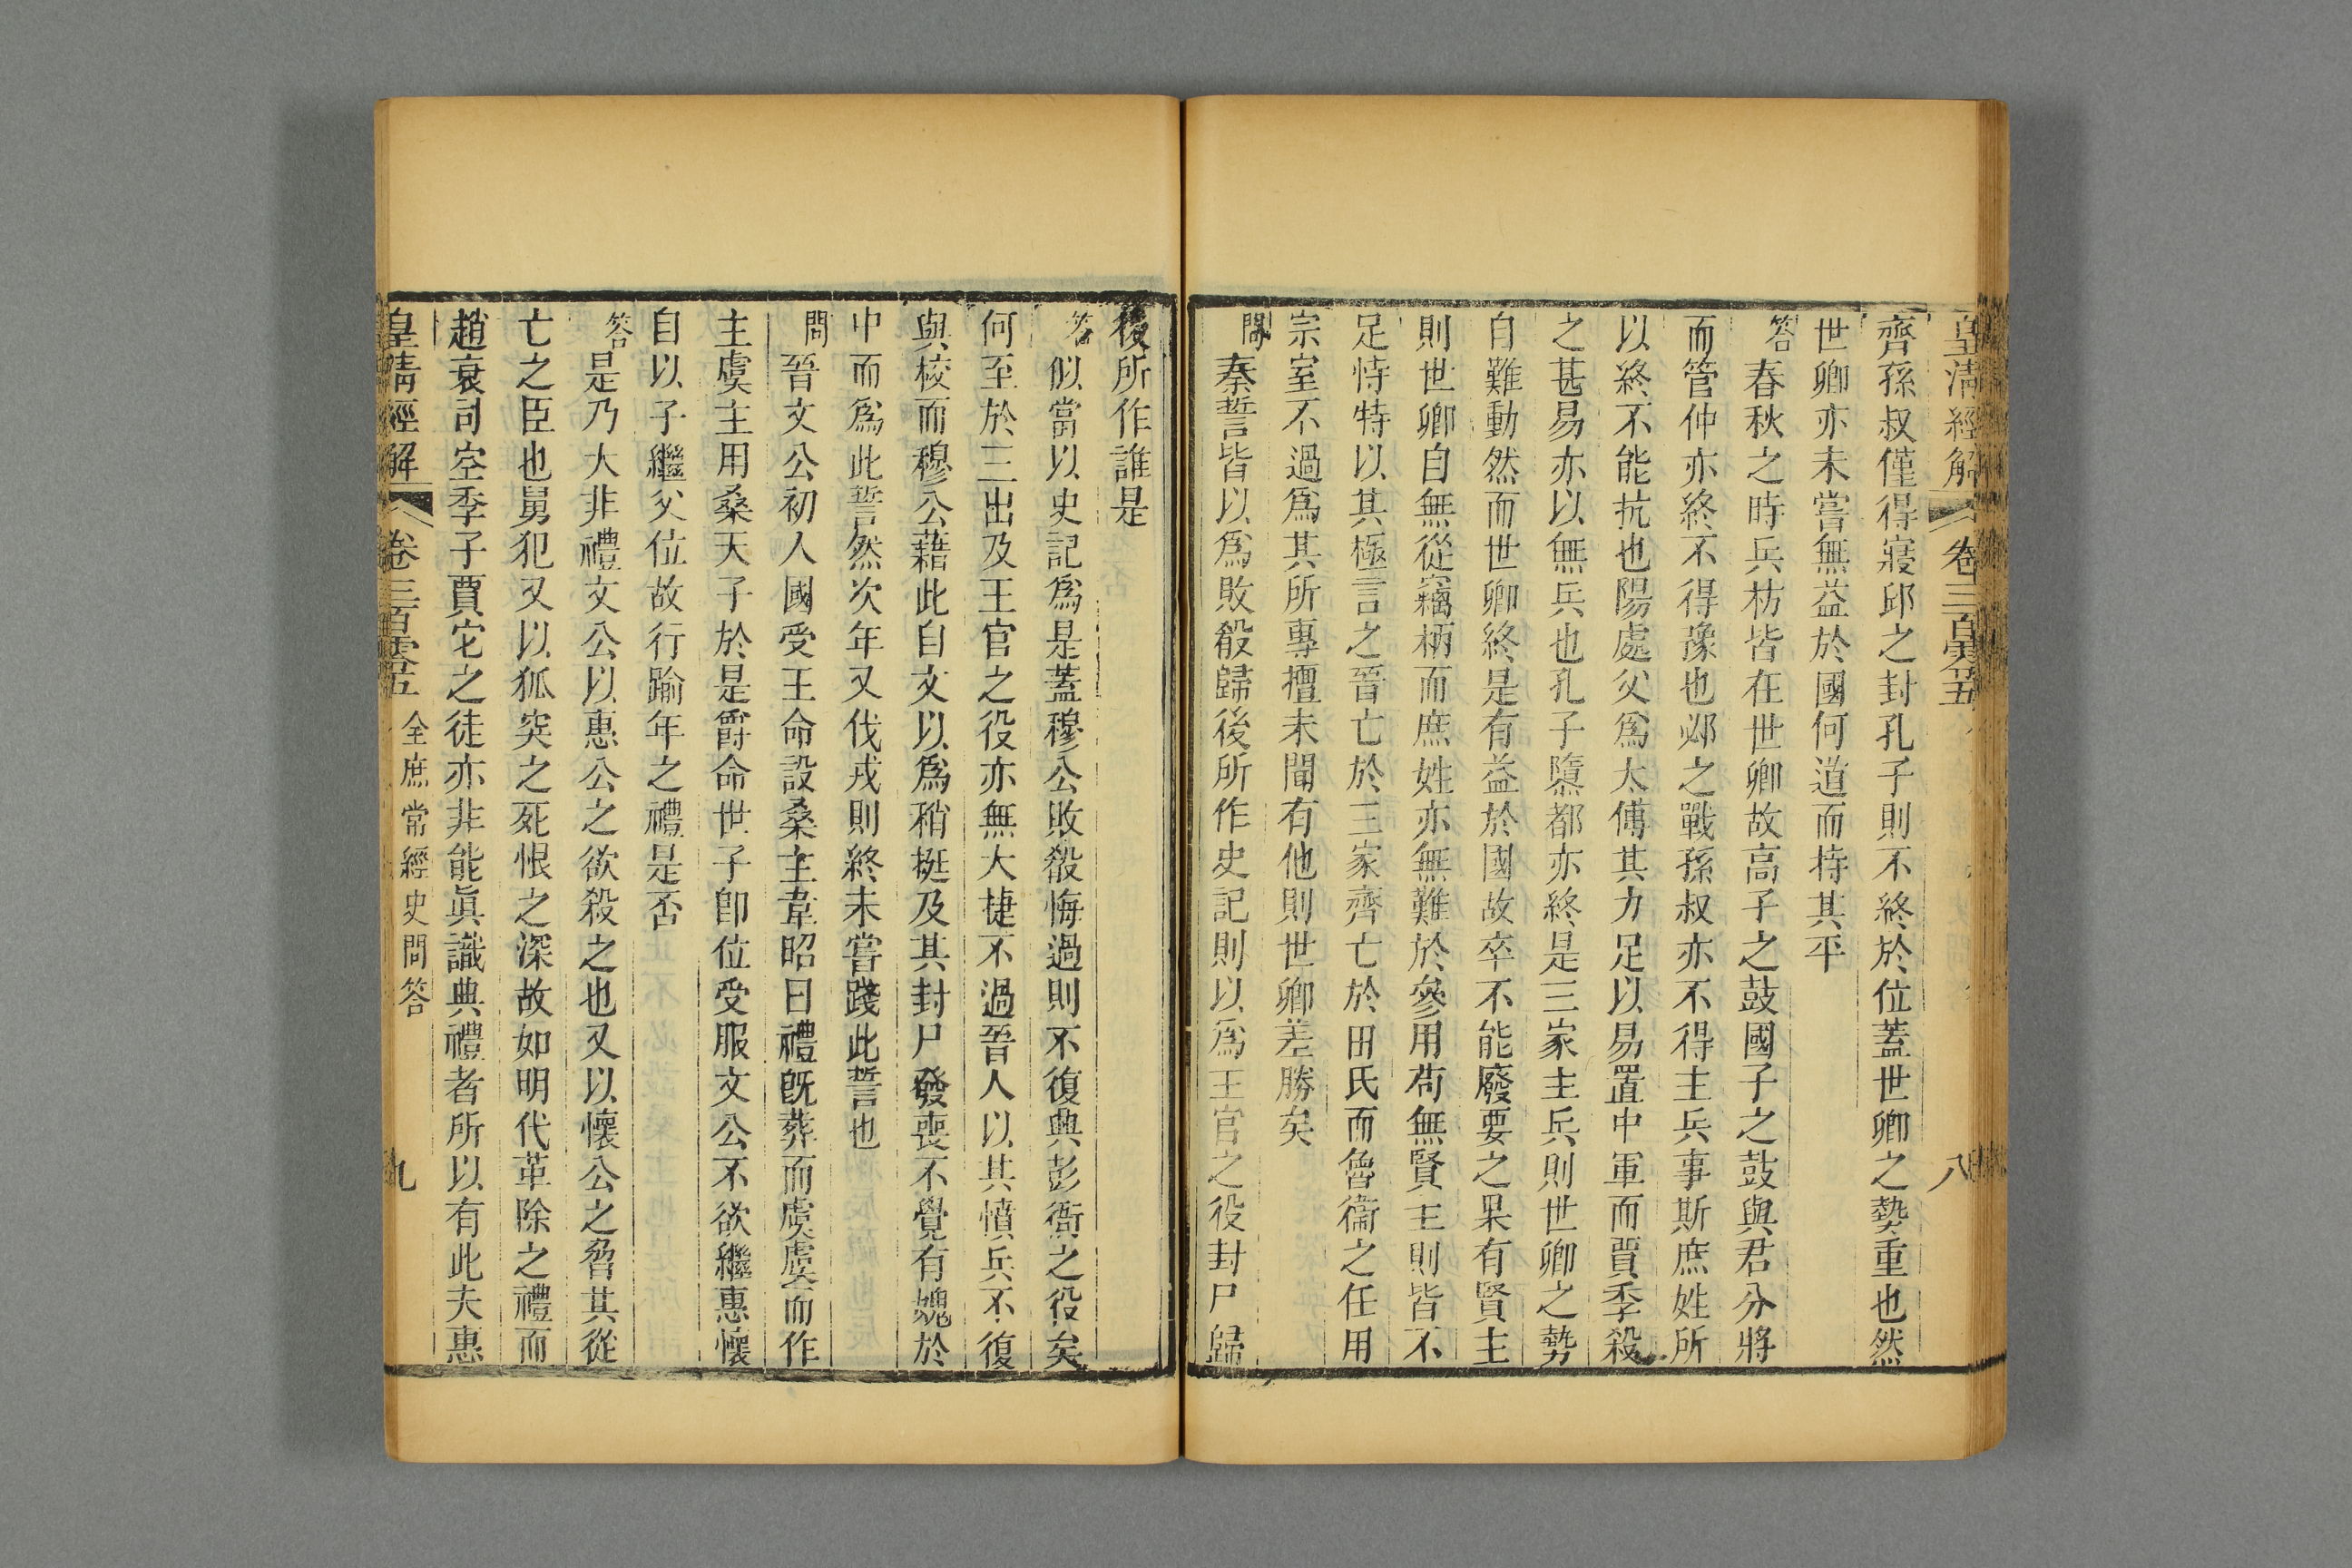 皇清經解 卷三百零五 八
齊孫叔僅得寢邱之封孔子則不終於位蓋世卿之勢重也然
世卿亦未嘗無益於國何道而持其平
答春秋之時兵枋皆在世卿故高子之鼓國子之鼓與君分將
而管仲亦終不得豫也邲之戰孫叔亦不得主兵事斯庶姓所
以終不能抗也陽處父為太傅其力足以易置中軍而賈季殺
之甚易亦以無兵也孔子墮都亦終是三家主兵則世卿之勢
自難動然而世卿終是有益於國故卒不能廢要之果有賢主
則世卿自無從竊柄而庶姓亦無難於參用苟無賢主則皆不
足恃特以其極言之晉亡於三家齊亡於田氏而魯衞之任用
宗室不過爲其所專擅未聞有他則世卿差勝矣
問秦誓皆以爲敗殽歸後所作史記則以爲王官之役封尸歸
後所作誰是
答似當以史記爲是蓋穆公敗殽悔過則不復興彭衙之役矣
何至於三出及王官之役亦無大捷不過晉人以其憤兵不復
與校而穆公藉此自文以爲稍挺及其封尸發喪不覺有媿於
中而爲此誓然次年又伐戎則終未嘗踐此誓言也
問晉文公初入國受王命設桑主韋昭曰禮旣葬而虞虞而作
主虞主用桑天子於是爵命世子卽位受服文公不欲繼惠懷
自以子繼父位故行踰年之禮是否
答是乃大非禮文公以惠公之欲殺之也又以懷公之脅其從
亡之臣也舅犯又以狐突之死恨之深故如明代革除之禮而
趙衰司空季子賈佗之徒亦非能眞識典禮者所以有此夫惠
皇清經解 卷三百零五 全庶常經史問答 九